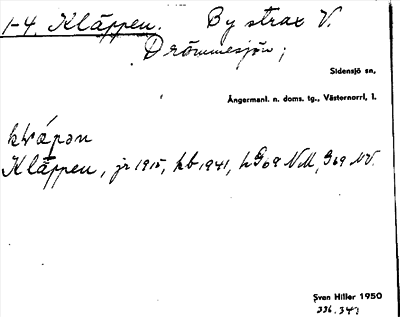 1-4. Kläppen. By strax V.
Drömmesjön;
Sidensjö sn,
Ångermanl. n. doms. tg., Västernorrl. l.
Kläppen, jr 1915, kb 1941, hG69 NM, G69 NV.
Sven Hiller 1950
336.342